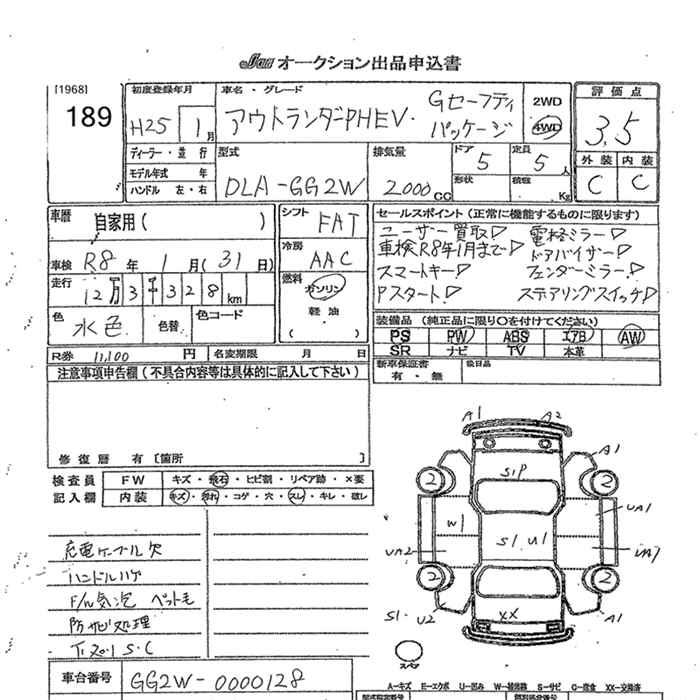 JU オークション出品申込書
[1968]
189
初度登録年月
H25 1月
車名・グレード
アウトランダーPHEV・ Gセーフティパッケージ
2WD
4WD
評価点
3.5
外装 内装
C C
ディーラー・並行
モデル年式 年
ハンドル 左・右
型式
DLA-GG2W
排気量
2000 CC
ドア 5
形状
定員 5人
積載 Kg
車歴 自家用( )
車検 R8年 1月(31日)
走行 12万3千328km
色 水色
色替
色コード
R券 11,100円
名変期限 月 日
シフト FAT
冷房 AAC
燃料 ガソリン
軽油
( )
セールスポイント(正常に機能するものに限ります)
ユーザー買取▷ 電格ミラー▷
車検R8年1月まで▷ ドアバイザー▷
スマートキー▷ フェンダーミラー▷
Pスタート▷ ステアリングスイッチ▷
装備品(純正品に限り○を付けてください)
PS PW ABS エアB AW
SR ナビ TV 本革
新車保証書
有・無
注意事項申告欄(不具合内容等は具体的に記入して下さい)
修復歴 有[箇所 ]
検査員記入欄
FW キズ・飛石・ヒビ割・リペア跡・×要
内装 キズ・汚れ・コゲ・穴・スレ・キレ・破レ
充電ケーブル欠
ハンドルハゲ
F/ガラス気泡 ペット毛
防サビ処理
S・C
車台番号 GG2W-0000128
A1 A2
A1
S1P
2 2
W1
S1 U1
UA1
UA2
UA7
2 2
S1・U2
XX
A1
スペア
A−キズ E−エクボ U−凹み W−補修跡 S−サビ C−腐食 XX−交換済